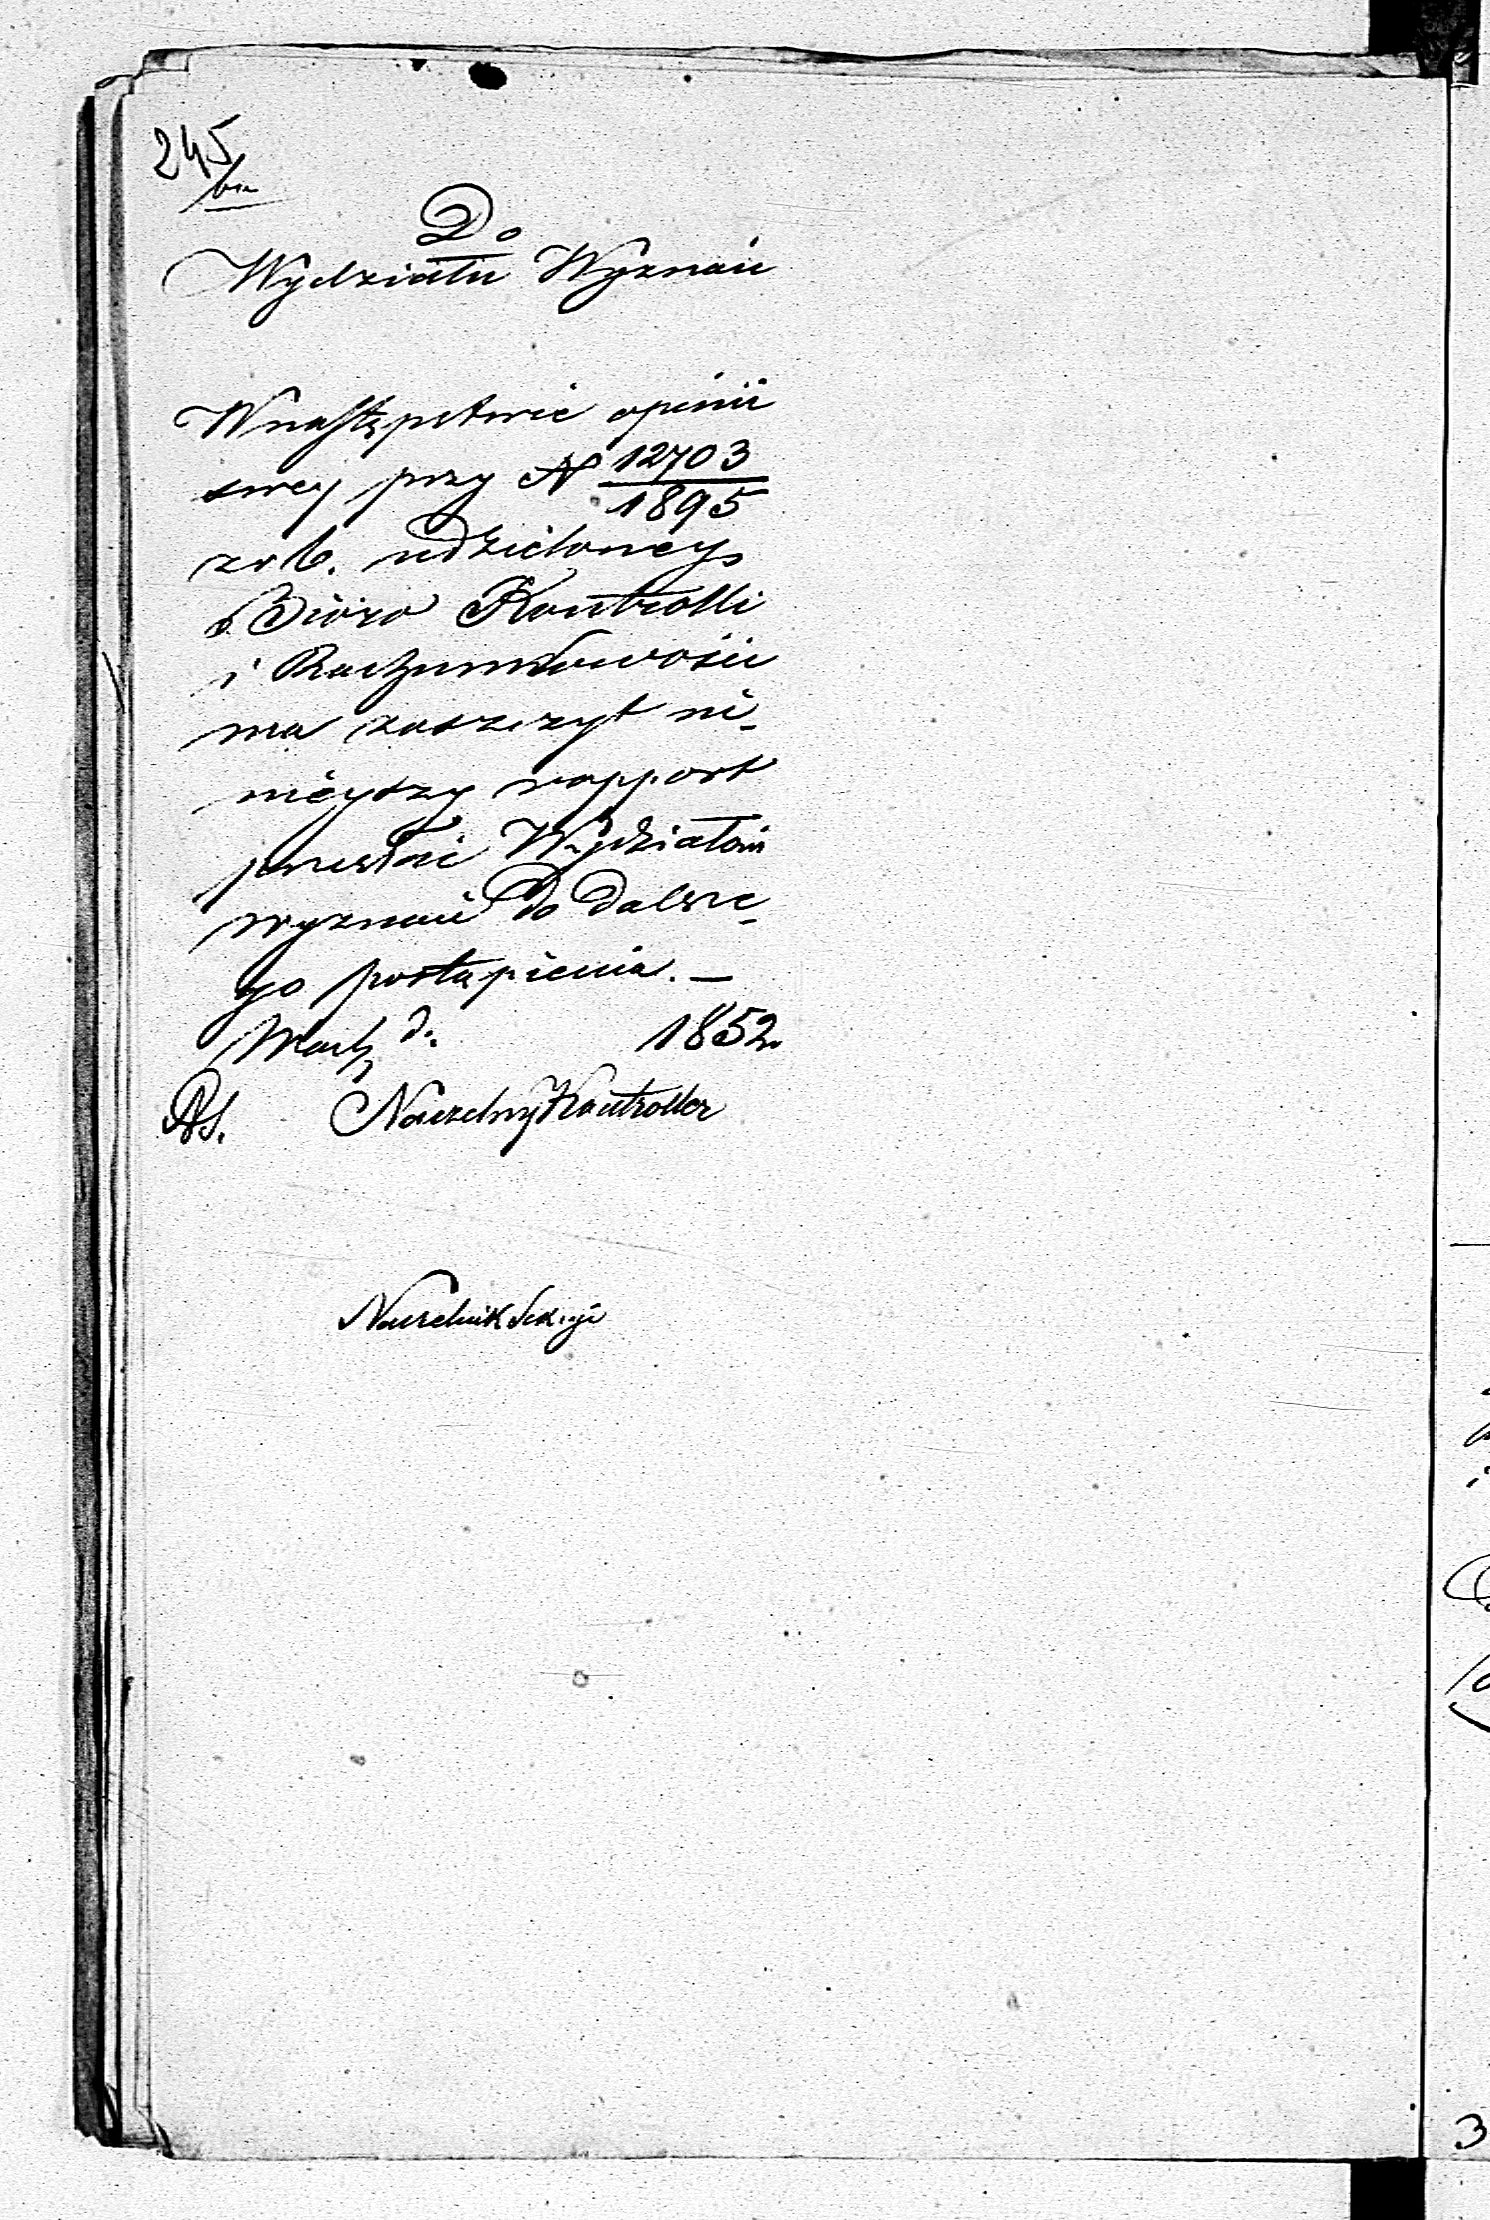 245
Do
Wydziału Wyznań
W następstwie opinii
swey przy N 12703
1895
z r. b. udzieloney,
Bióro Kontrolli
i Rachunkowości
ma zaszczyt ni-
nieyszy rapport
przesłać Wydziałowi
wyznań do dalsze-
go postąpienia. —
Warsz. d. 1852.
Naczelny Kontroller
Naczelnik Sekcyi
3